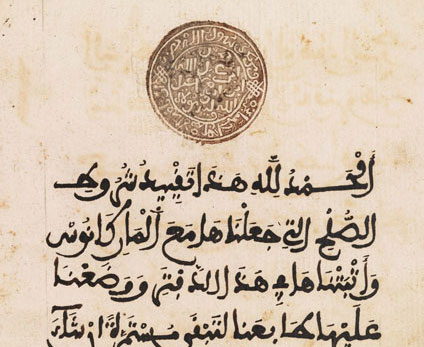 الحمد لله هذا تقييد شروط
الصلح التي جعلناها مع الماركانوس
وأثبتناها في هذا الدفتر ووضعنا
عليها طابعنا لتبقى مستمرة إن شاء